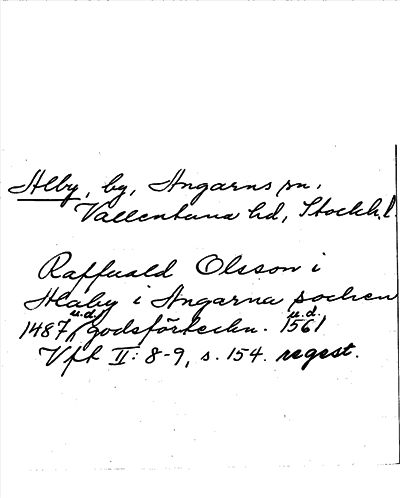 Alby, by, Angarns sn.
Vallentuna hd, Stockh. l.
Raffuald Olsson i
Alaby i Angarna sochen
1487 u.d. (godsförteckn. 1561 u.d.
Vfh II: 8-9, s. 154. regest.